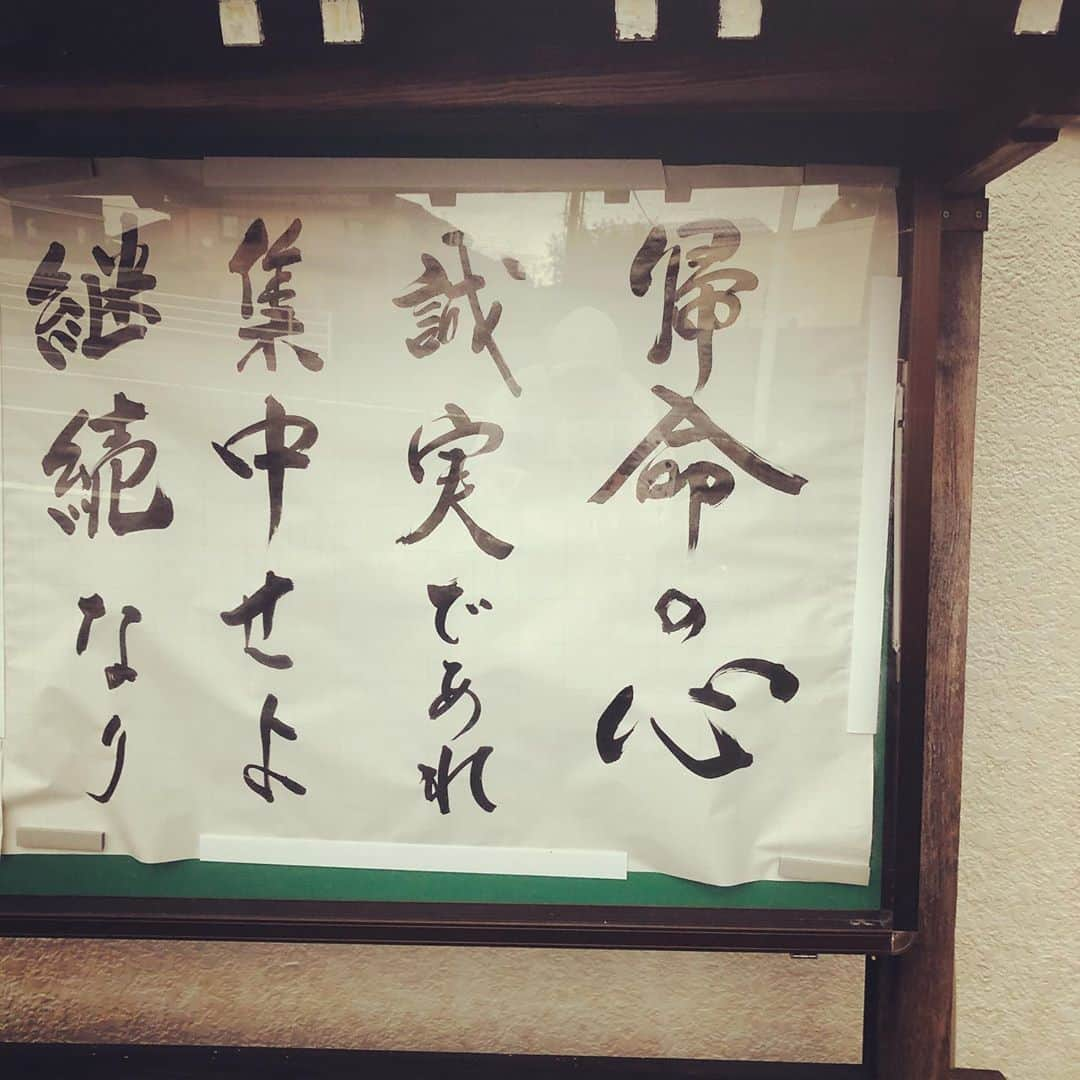 帰命の心
誠実であれ
集中せよ
継続なり